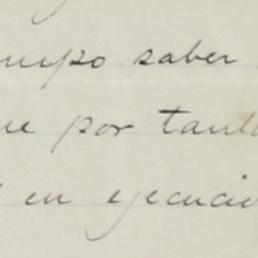 saber
por tanto
en ejecució